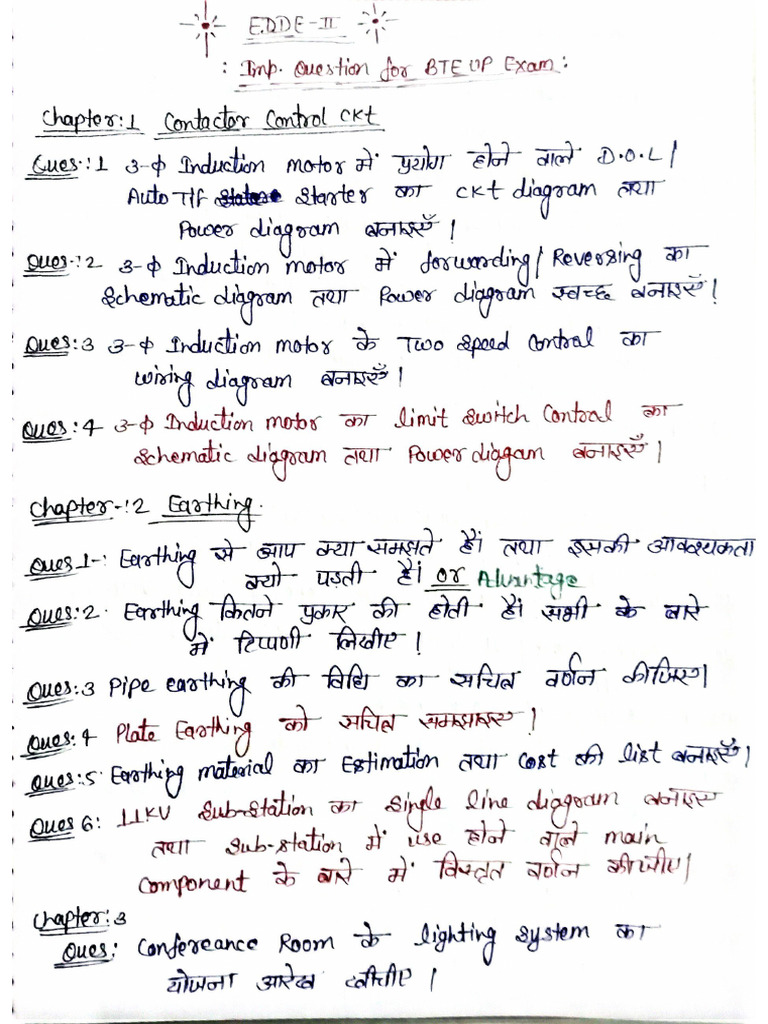 E.DDE-II
: Imp. Question for BTEUP Exam:
Chapter:1 Contactor Control CKt
Ques:1 3-ф Induction motor में प्रयोग होने वाले D.O.L/
Auto T/f Starter का CKt diagram तथा
Power diagram बनाइएँ।
Ques-:2 3-ф Induction motor में forwarding/Reversing का
Schematic diagram तथा Power diagram स्वच्छ बनाइएँ।
Ques:3 3-ф Induction motor के Two Speed Control का
wiring diagram बनाइएँ।
Ques:4 3-ф Induction motor का limit Switch Control का
Schematic diagram तथा Power diagam बनाइएँ।
Chapter-:2 Earthing.
Ques1-: Earthing से आप क्या समझते हैं। तथा इसकी आवश्यकता
क्यो पड़ती हैं। or Advantage
Ques:2. Earthing कितने प्रकार की होती हैं। सभी के बारे
में टिप्पणी लिखीए।
Ques:3 Pipe earthing की विधि का सचित्र वर्णन कीजिए।
Ques:4 Plate Earthing को सचित्र समझाइए।
Ques:5. Earthing material का Estimation तथा Cost की list बनाएँ।
Ques 6: 11KV Sub-Station का Single line diagram बनाइए
तथा Sub-station में use होने वाले main
Component के बारे में विस्तृत वर्णन कीजीए।
Chapter:3
Ques: Confereance Room के lighting System का
योजना आरेख खीचीए।